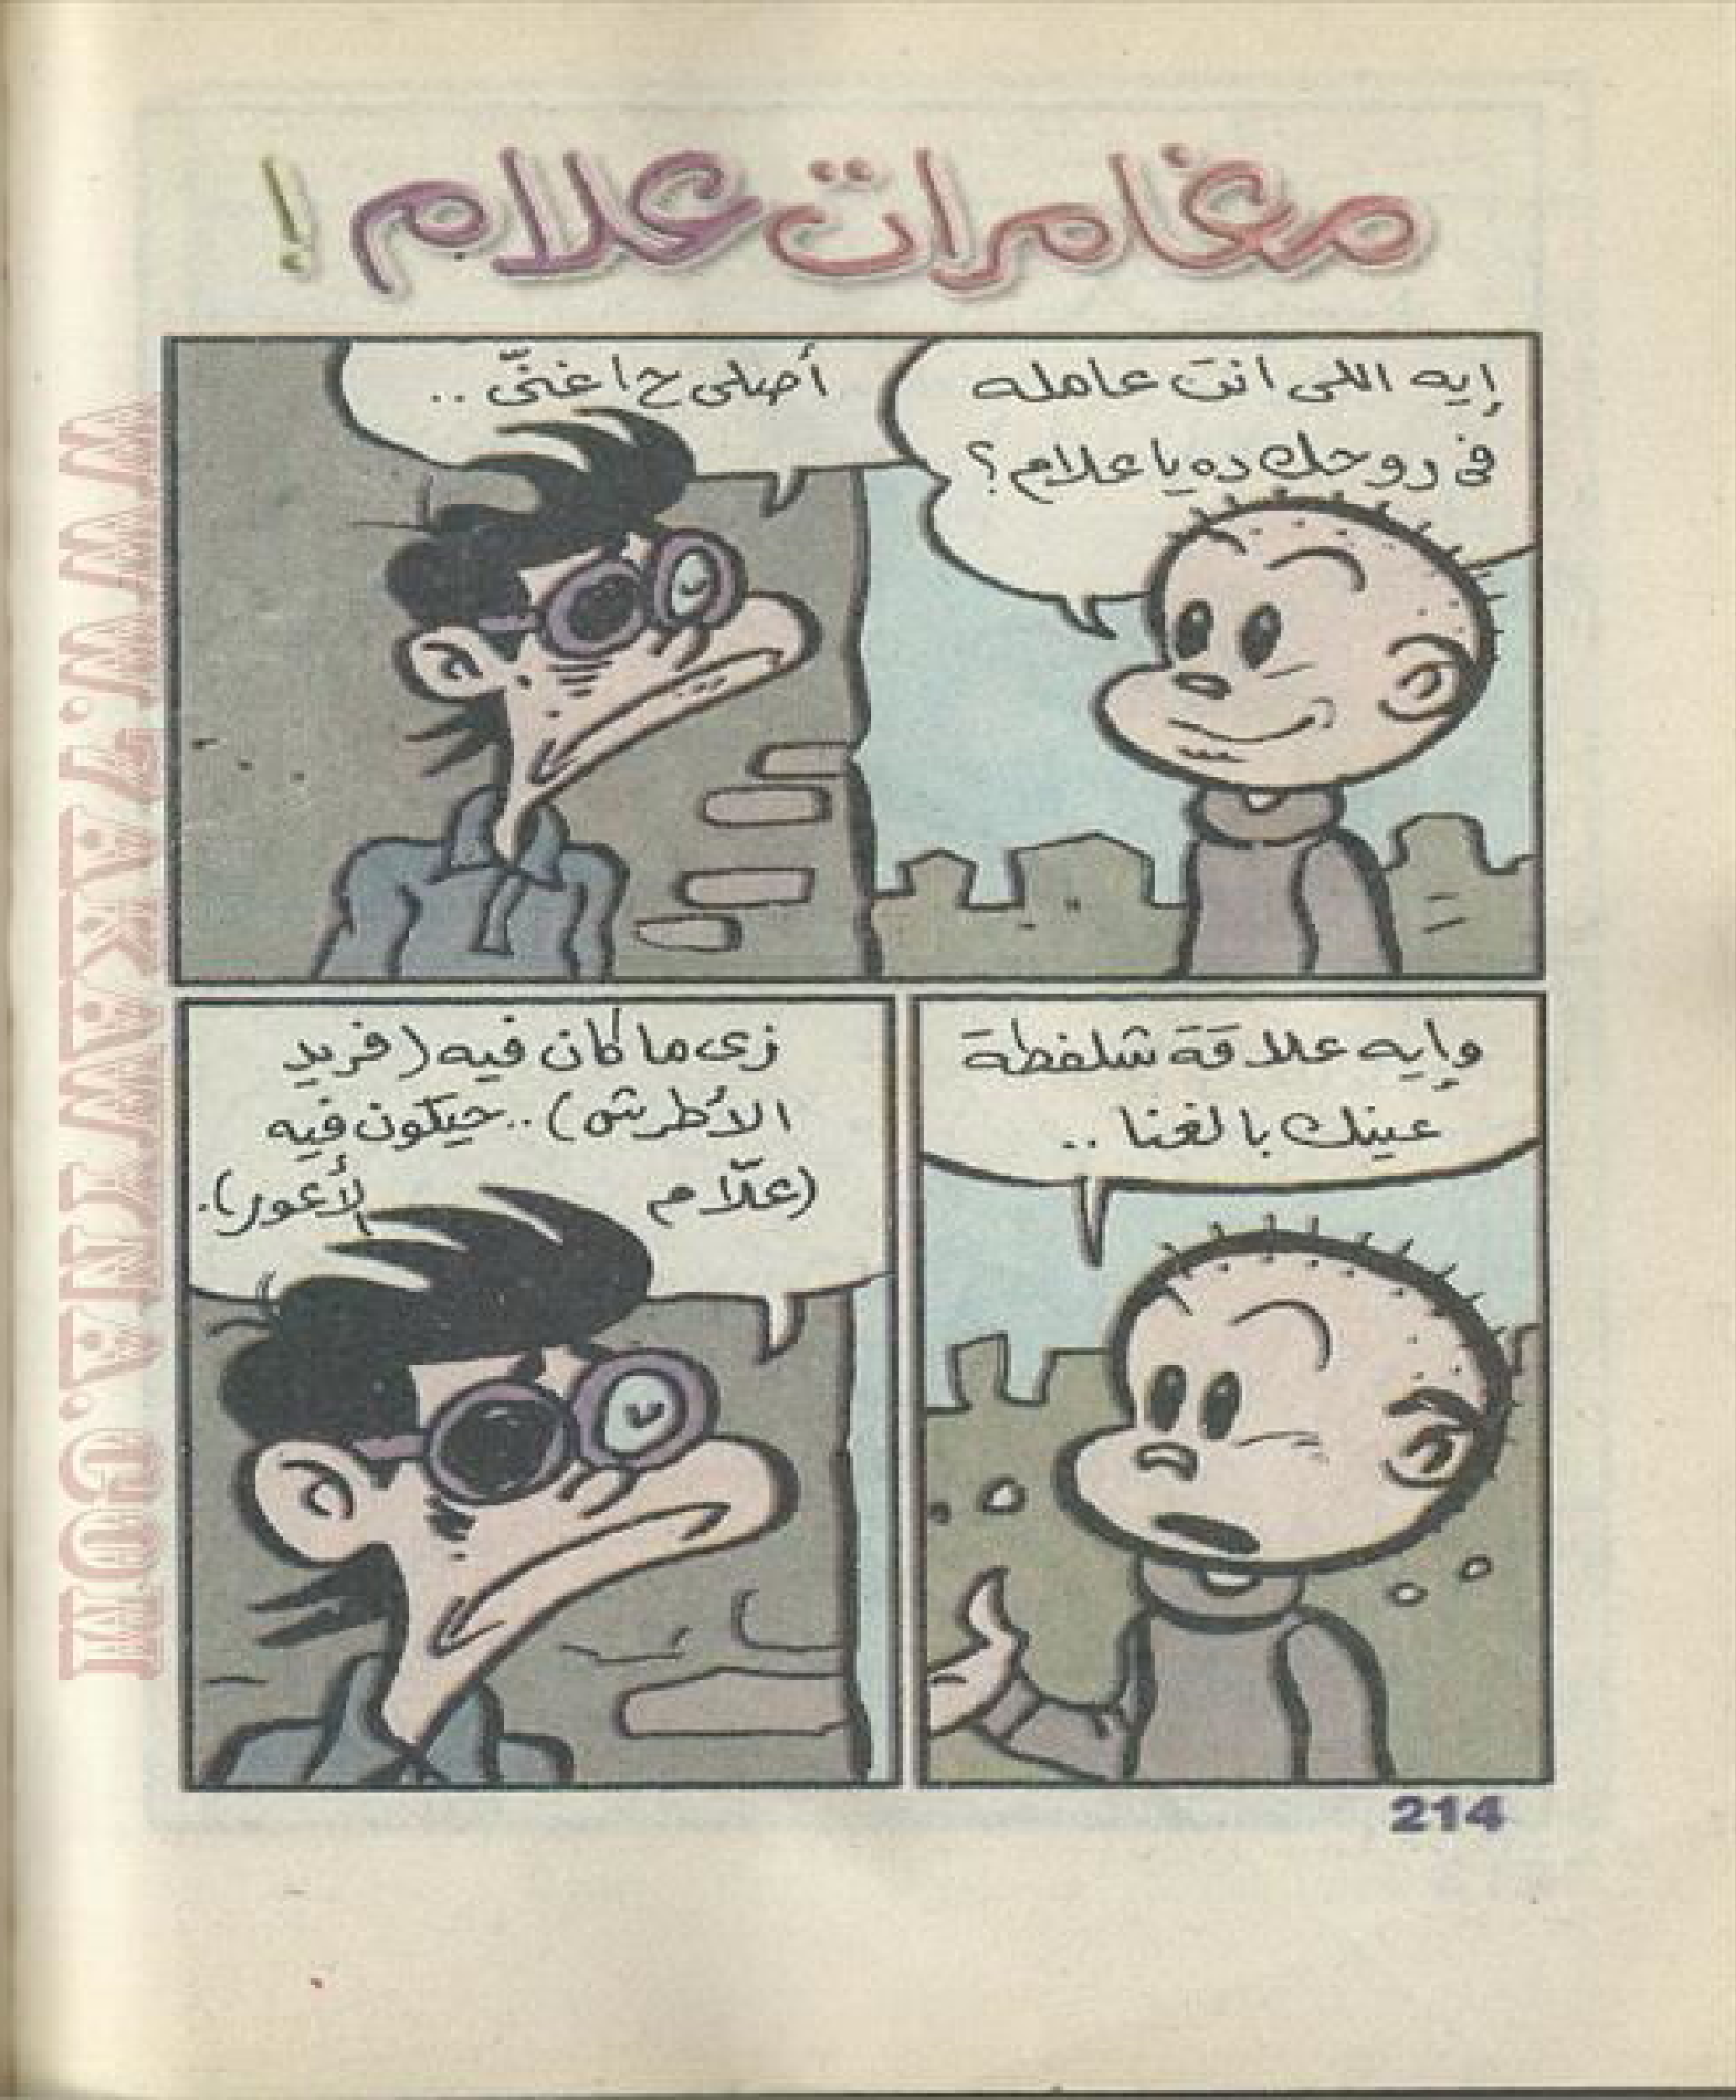 مغامرات علام !
إيه اللى انت عامله
فى روحك ده يا علام؟
أصلى ح اغنّى ..
وإيه علاقة شلفطة
عينك بالغنا ..
زى ما كان فيه (فريد
الأطرش) .. حيكون فيه
(علّام الأعور).
214
WWW.ZAKAWTNA.COM